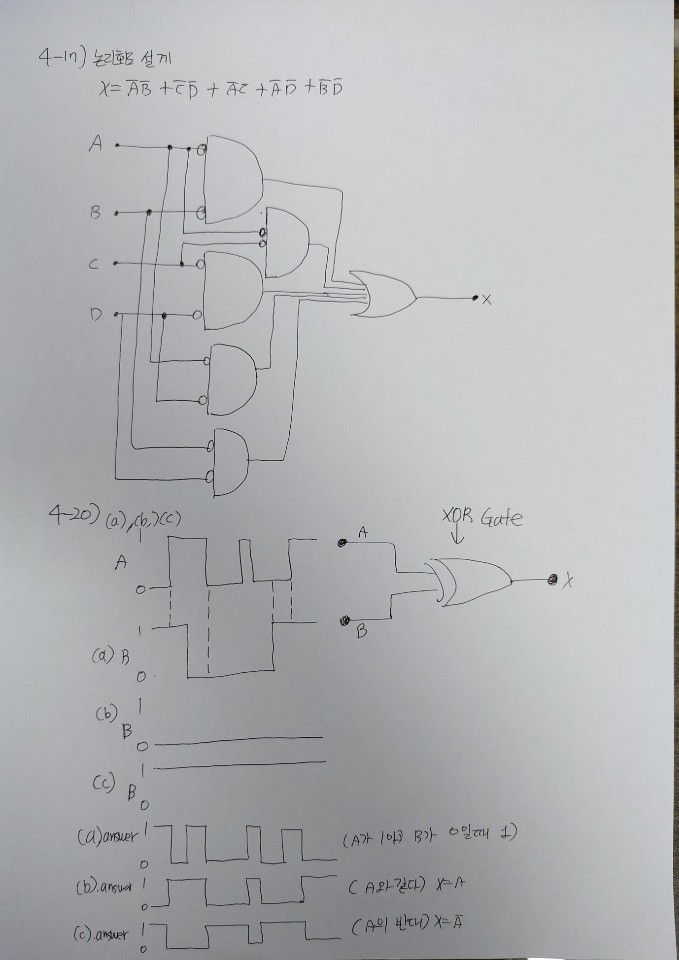 4-17) 논리회로 설계
X = A̅B̅ + C̅D̅ + A̅C̅ + A̅D̅ + B̅D̅
A
B
C
D
X
4-20) (a),(b,)(c)
XOR Gate
1
A
0
A
B
X
1
(a) B
0
1
(b)
B
0
1
(c) B
0
(a)answer 1 0 (A가 1이고 B가 0일때 1)
(b).answer 1 0 (A와 같다) X=A
(c).answer 1 0 (A의 반대) X=A̅